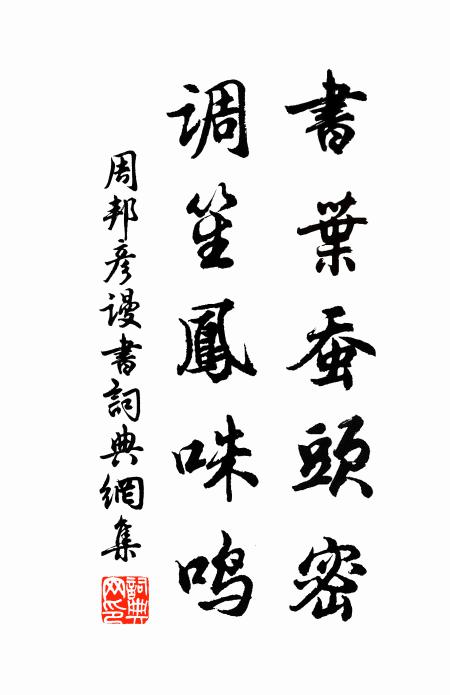 書葉蚕頭密
調笙鳳咮鳴
周邦彥謾書詞典網集
詞典网印